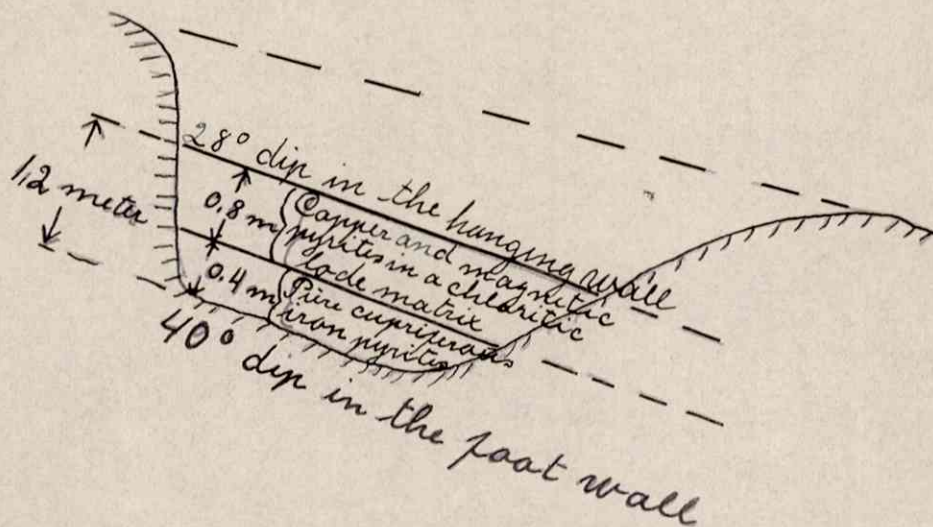 28° dip in the hanging wall
1,2 meter
0.8 m
Copper and magnetic
pyrites in a chloritic
lode matrix
0.4 m
Pure cupriferous
iron pyrites
40° dip in the foot wall